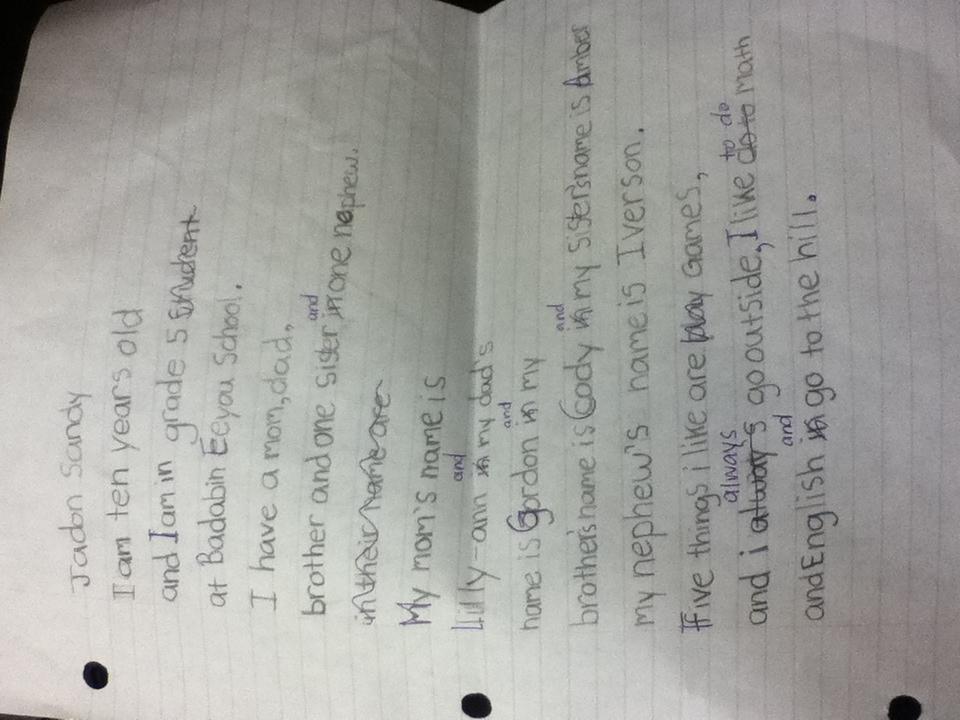 Jadon Sandy
I am ten years old
and I am in grade 5 student
at Badabin Eeyou School.
I have a mom, dad,
and
brother and one sister in one nephew.
in their name are
My mom's name is
and
Lilly-ann in my dad's
and
name is Gordon in my
and
brother's name is Cody in my sister's name is Amber
my nephew's name is Iverson.
Five things i like are play Games,
always to do
and i alway's go outside, I like do to math
and
and English in go to the hill.